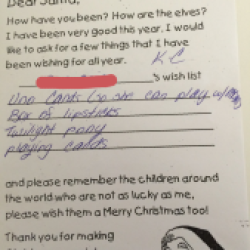 Dear Santa,
How have you been? How are the elves?
I have been very good this year. I would
like to ask for a few things that I have
been wishing for all year.
KC
's wish list
Uno Cards (so she can play w/
Box of lipsticks
Twilight pony
playing cards
and please remember the children around
the world who are not as lucky as me,
please wish them a Merry Christmas too!
Thank you for making